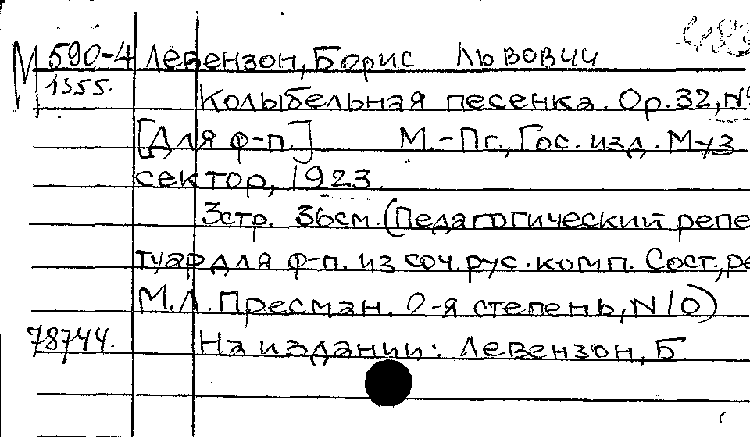 М 590-4 Левензон, Борис Львович
1355.
Колыбельная песенка. Ор. 32, N
[Для ф-п.] М.-Пг., Гос. изд. Муз
сектор, 1923.
3стр. 36см. (Педагогический репе
туар для ф-п. из соч. рус. комп. Сост, ре
М.Л. Пресман. 0-я степень, N10)
78744. На издании: Левензон, Б